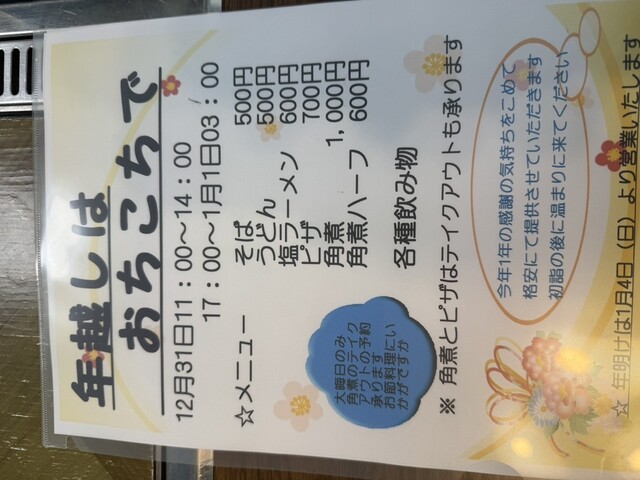 年越しは
おちこちで
12月31日11：00〜14：00
17：00〜1月1日03：00
☆メニュー
そば 500円
うどん 500円
塩ラーメン 600円
ピザ 700円
角煮 1,000円
角煮ハーフ 600円
各種飲み物
大晦日のみ
角煮のテイク
アウトの予約
承ります
お節料理にい
かがですか
※ 角煮とピザはテイクアウトも承ります
今年1年の感謝の気持ちをこめて
格安にて提供させていただきます
初詣の後に温まりに来てください
☆ 年明けは1月4日（日）より営業いたします